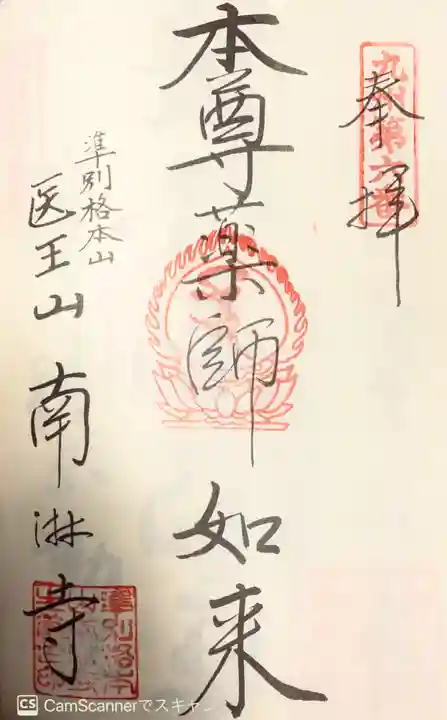 奉拝
九州第六番
本尊薬師如来
準別格本山
医王山 南淋寺
CS CamScannerでスキャン